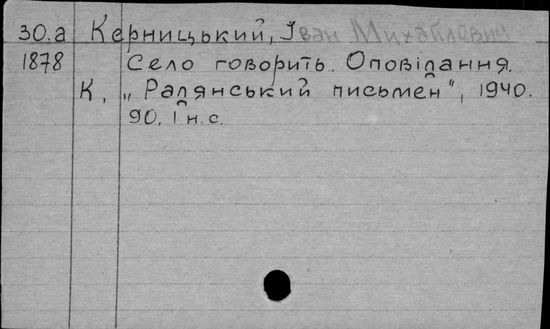 30.а Керницький, Іван Михайлович
1878 Село говорить. Оповідання.
К, „Радянський письмен", 1940.
90, 1 н. с.